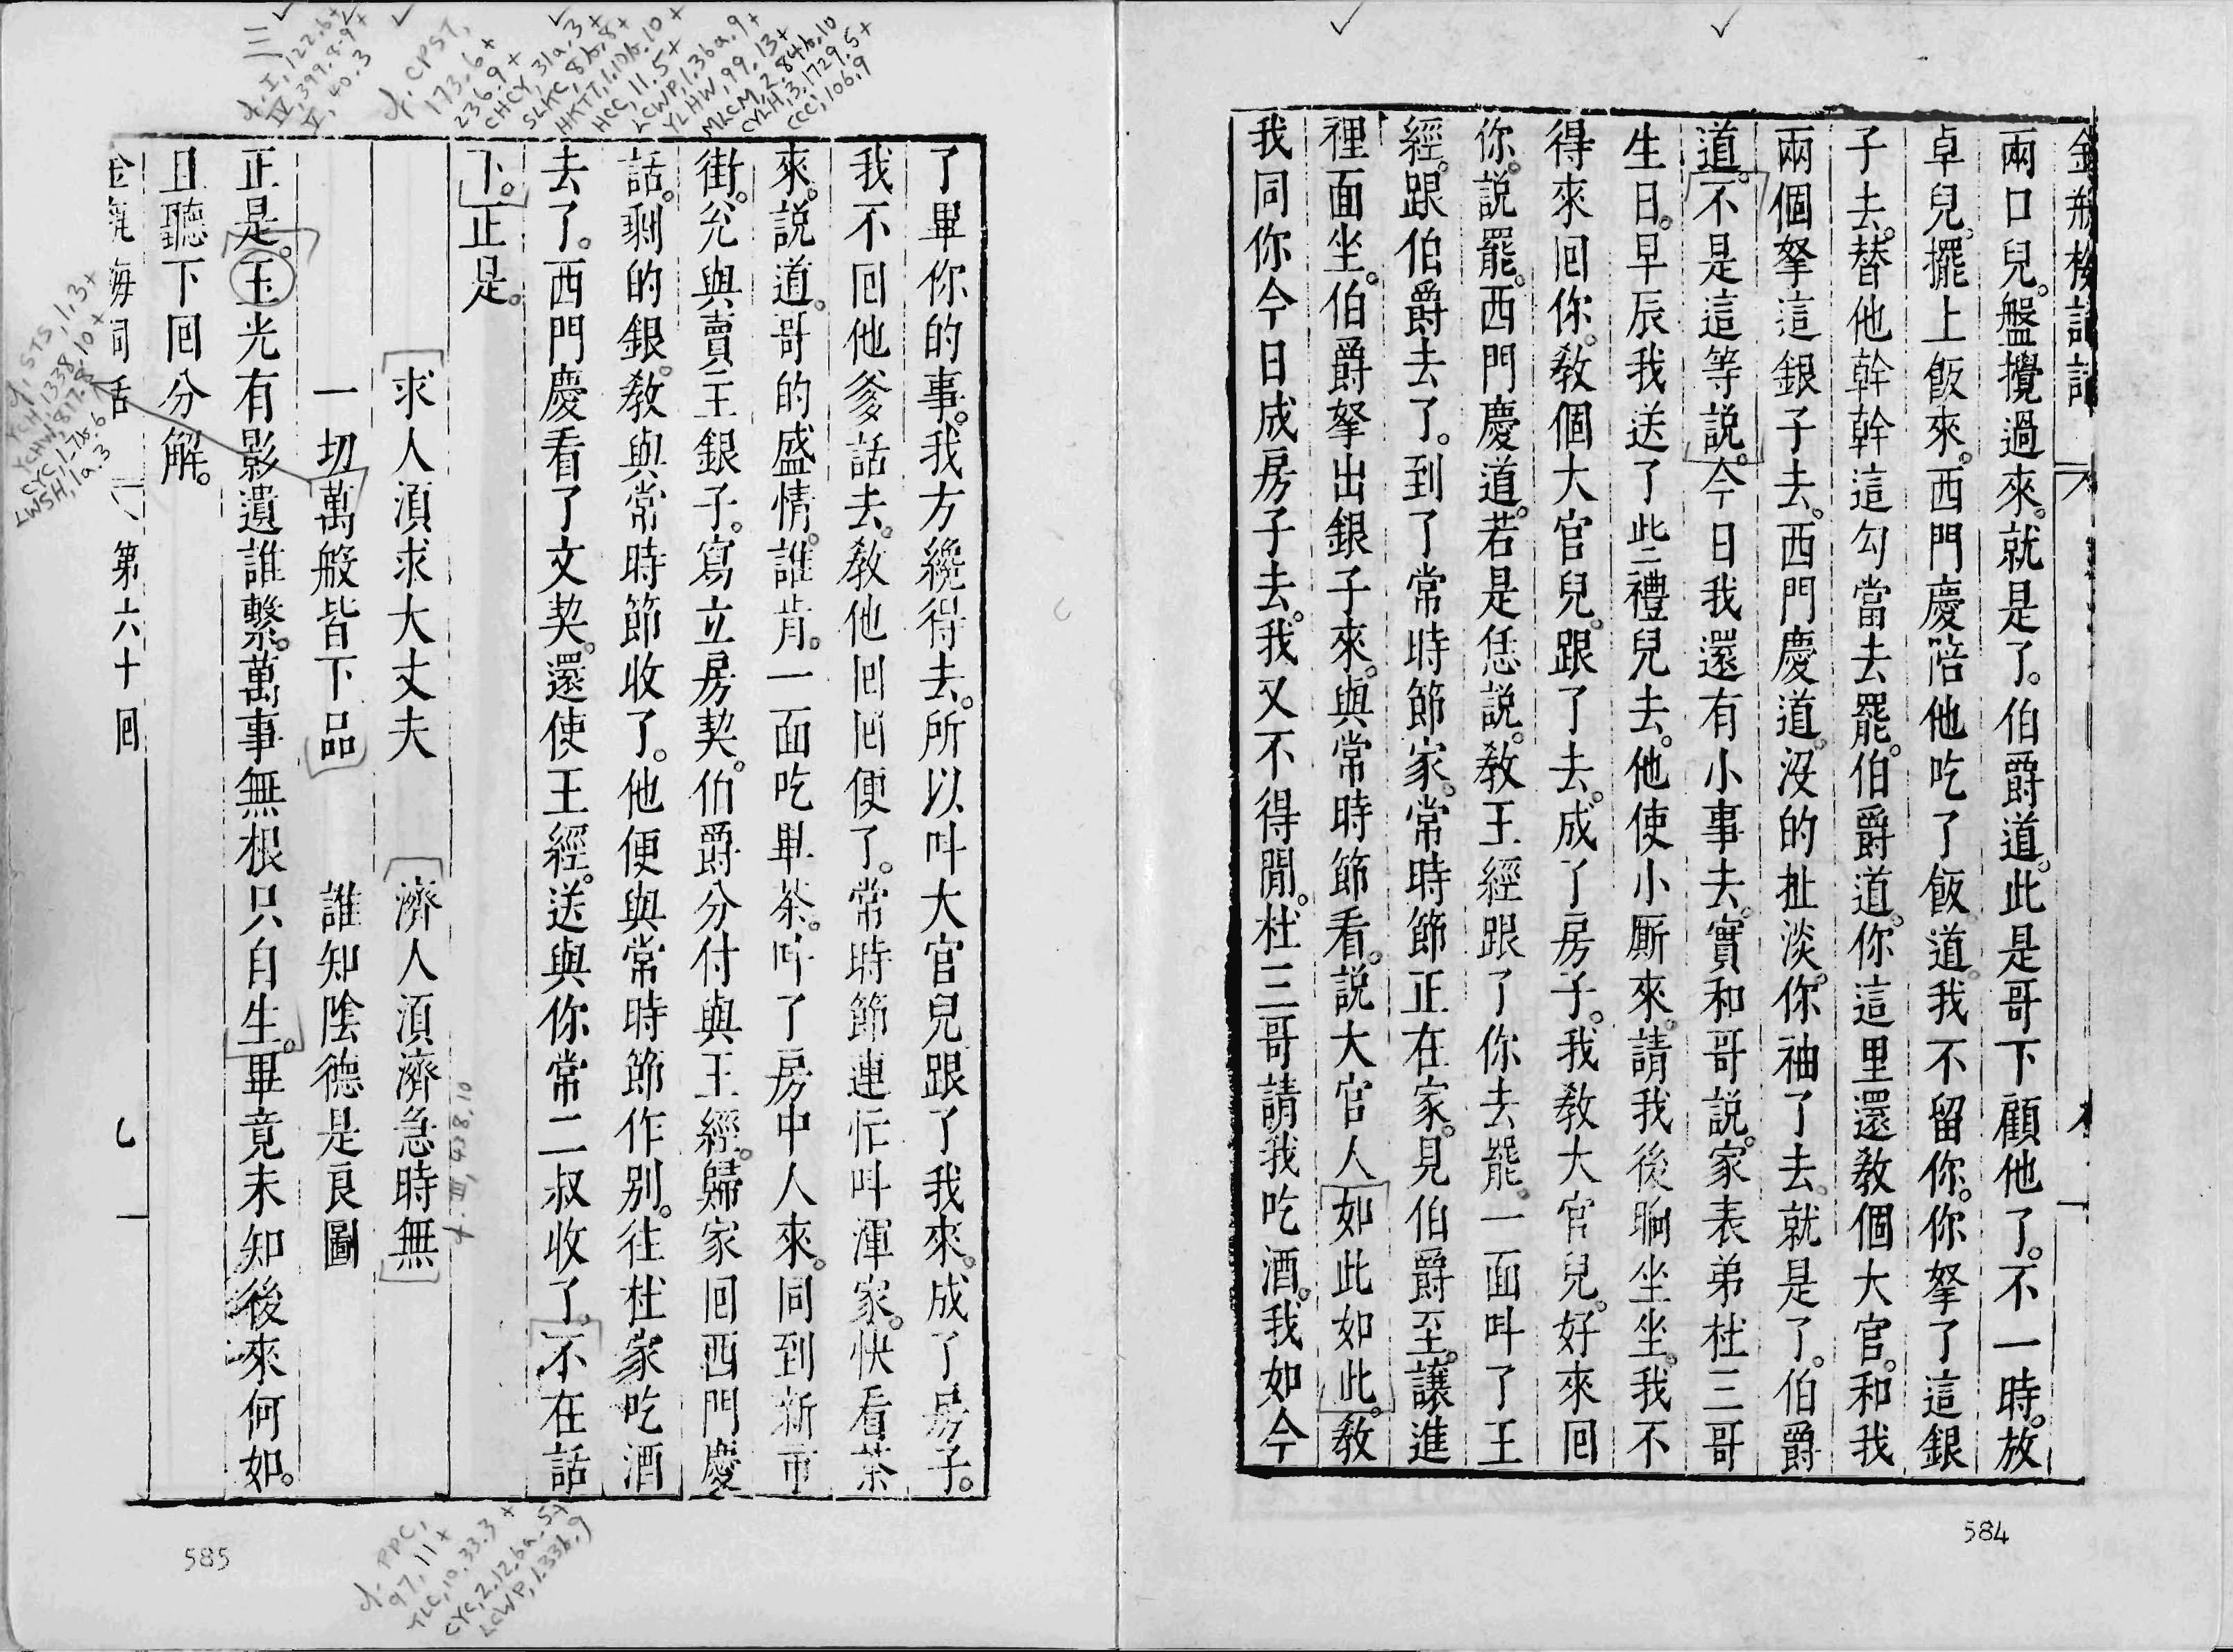 金瓶梅詞話
兩口兒。盤攪過來。就是了。伯爵道。此是哥下顧他了。不一時。放
卓兒。擺上飯來。西門慶陪他吃了飯。道。我不留你。你拏了這銀
子去。替他幹幹這勾當去罷。伯爵道。你這里還教個大官。和我
兩個拏這銀子去。西門慶道。沒的扯淡。你袖了去。就是了。伯爵
道。不是這等說。今日我還有小事去。實和哥說。家表弟杜三哥
生日。早辰我送了些禮兒去。他使小厮來。請我後晌坐坐。我不
得來回你。教個大官兒。跟了去。成了房子。我教大官兒。好來回
你。說罷。西門慶道。若是恁說。教王經跟了你去罷。一面叫了王
經。跟伯爵去了。到了常時節家。常時節正在家。見伯爵至。讓進
裡面坐。伯爵拏出銀子來。與常時節看。說大官人如此如此。教
我同你今日成房子去。我又不得閒。杜三哥請我吃酒。我如今
584
了畢你的事。我方纔得去。所以叫大官兒跟了我來。成了房子。
我不回他爹話去。教他回回便了。常時節連忙叫渾家。快看茶
來。說道。哥的盛情。誰肯。一面吃畢茶。叫了房中人來。同到新市
街。兌與賣主銀子。寫立房契。伯爵分付與王經。歸家回西門慶
話。剩的銀。教與常時節收了。他便與常時節作別。往杜家吃酒
去了。西門慶看了文契。還使王經。送與你常二叔收了。不在話
下。正是。
求人須求大丈夫 濟人須濟急時無
一切萬般皆下品 誰知陰德是良圖
正是。玉光有影遺誰繫。萬事無根只自生。畢竟未知後來何如。
且聽下回分解。
金瓶梅詞話 第六十回
585
三
cf. I, 122.6+
IV, 399.8-9+
V, 40.3
cf. CPST,
173.6+
236.9+
CHCY, 31a.3+
SLKC, 8b.8+
HKTT, 1,10b.10+
HCC, 11.5+
LCWP, 1.36a.9+
YLHW, 99.13+
MLCM, 2.84b.10
CYLH, 3.1729.5+
CCCI, 106.9
cf. STS, 1.3+
YCH, 1338.10+
YCHW, 817.8
CYC, 1-7b.6
LWSH, 1a.3
cf. III, 438.10
cf. PPC,
97.11+
TLC, 10.33.3+
CYC, 2.12.6a.5+
LCWP, 1.33b.9